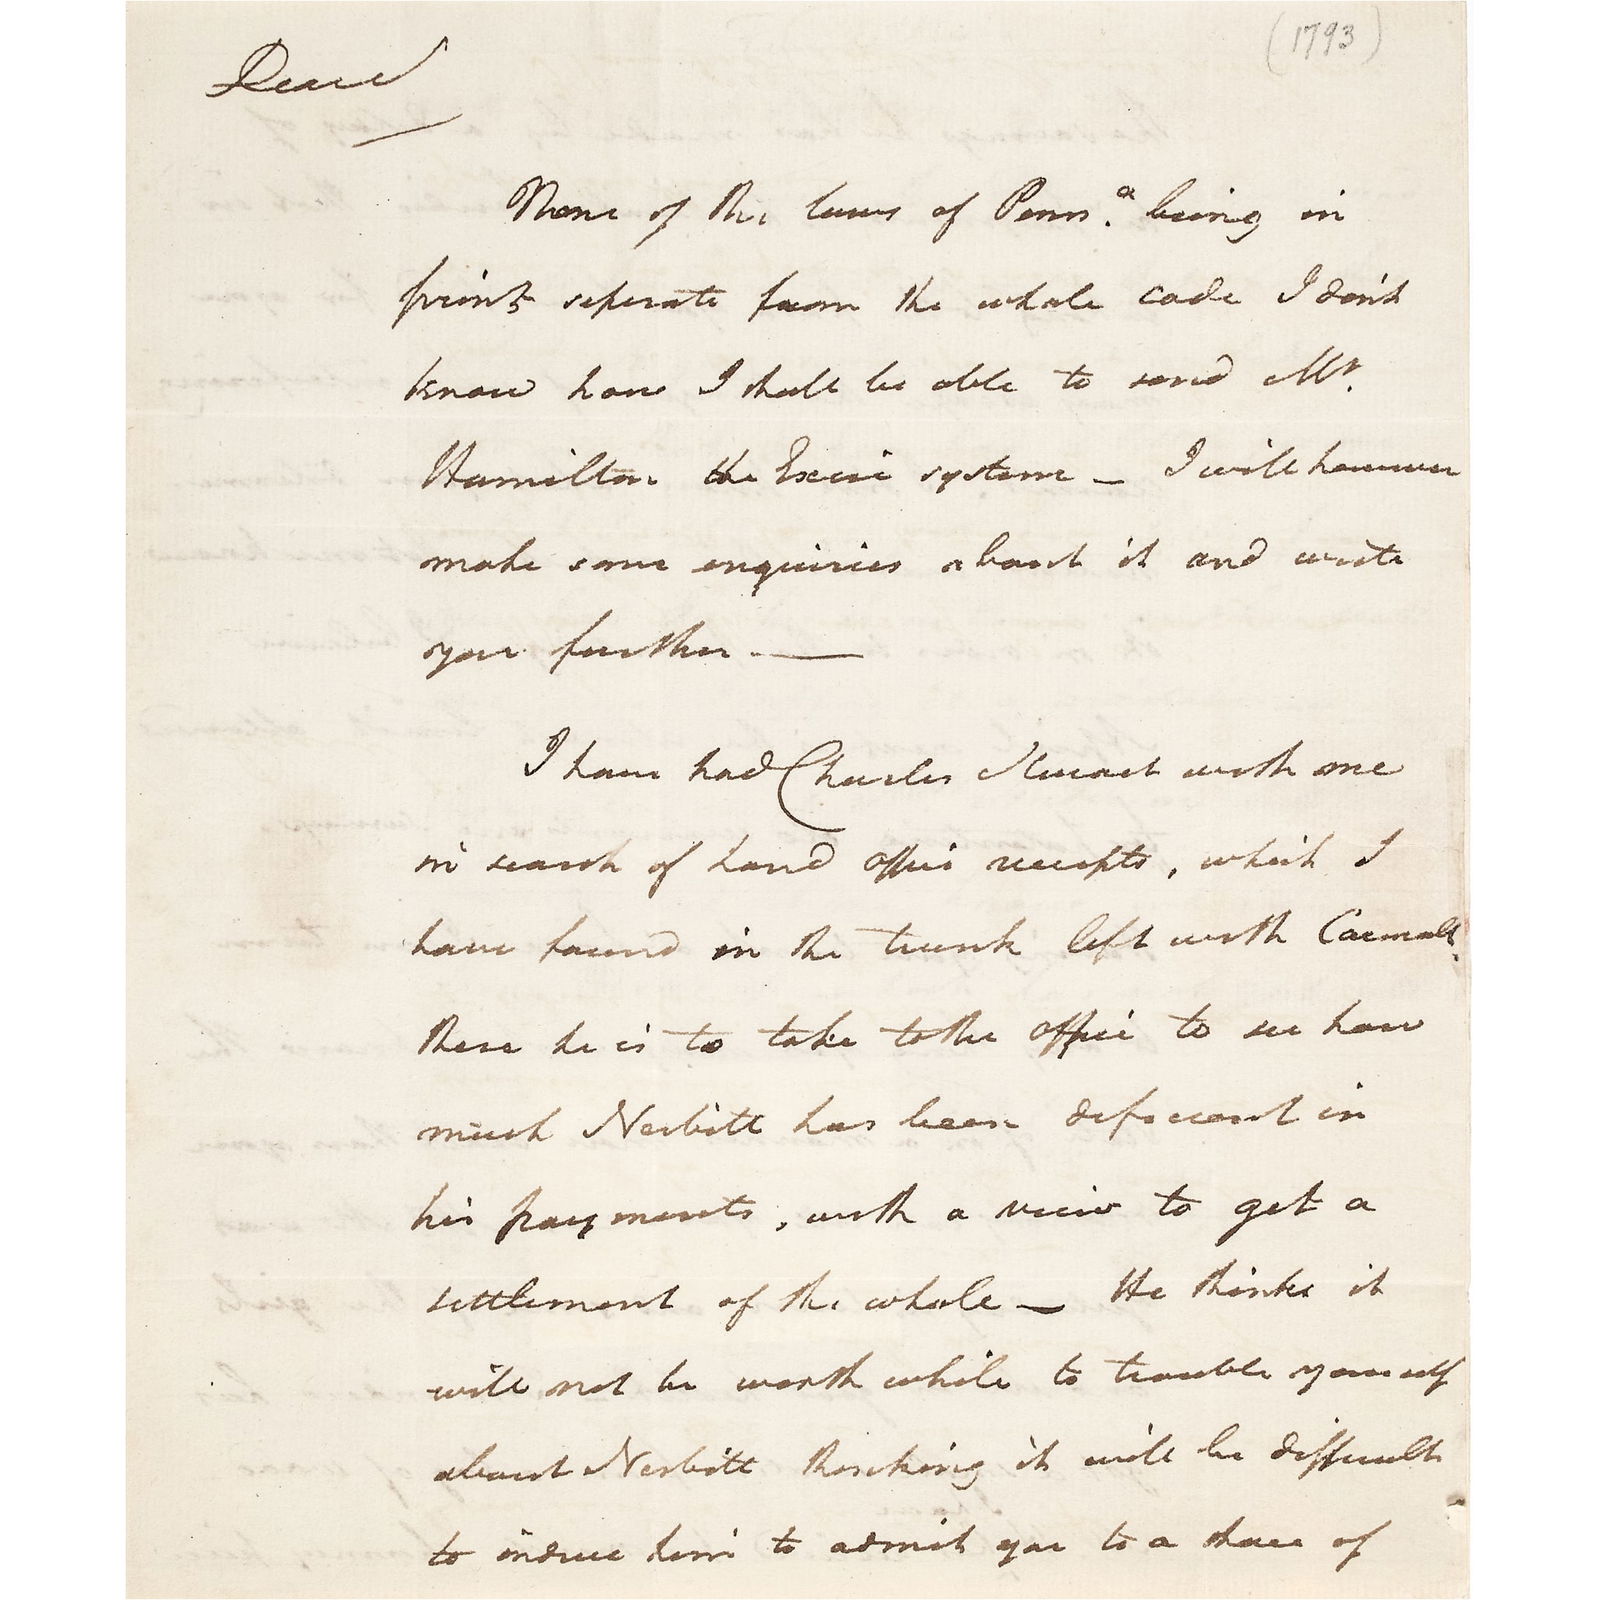 (1793)
Dear
None of the laws of Penns.a being in
print seperate from the whole code I don't
know how I shall be able to send Mr.
Hamilton the Excise system — I will however
make some enquiries about it and write
you further. —
I have had Charles Stewart with me
in search of Land office receipts, which I
have found in the trunk left with Carmalt.
these he is to take to the office to see how
much Nesbitt has been deficient in
his payments, with a view to get a
settlement of the whole — He thinks it
will not be worth while to trouble yourself
about Nesbitt thinking it will be difficult
to induce him to admit you to a share of